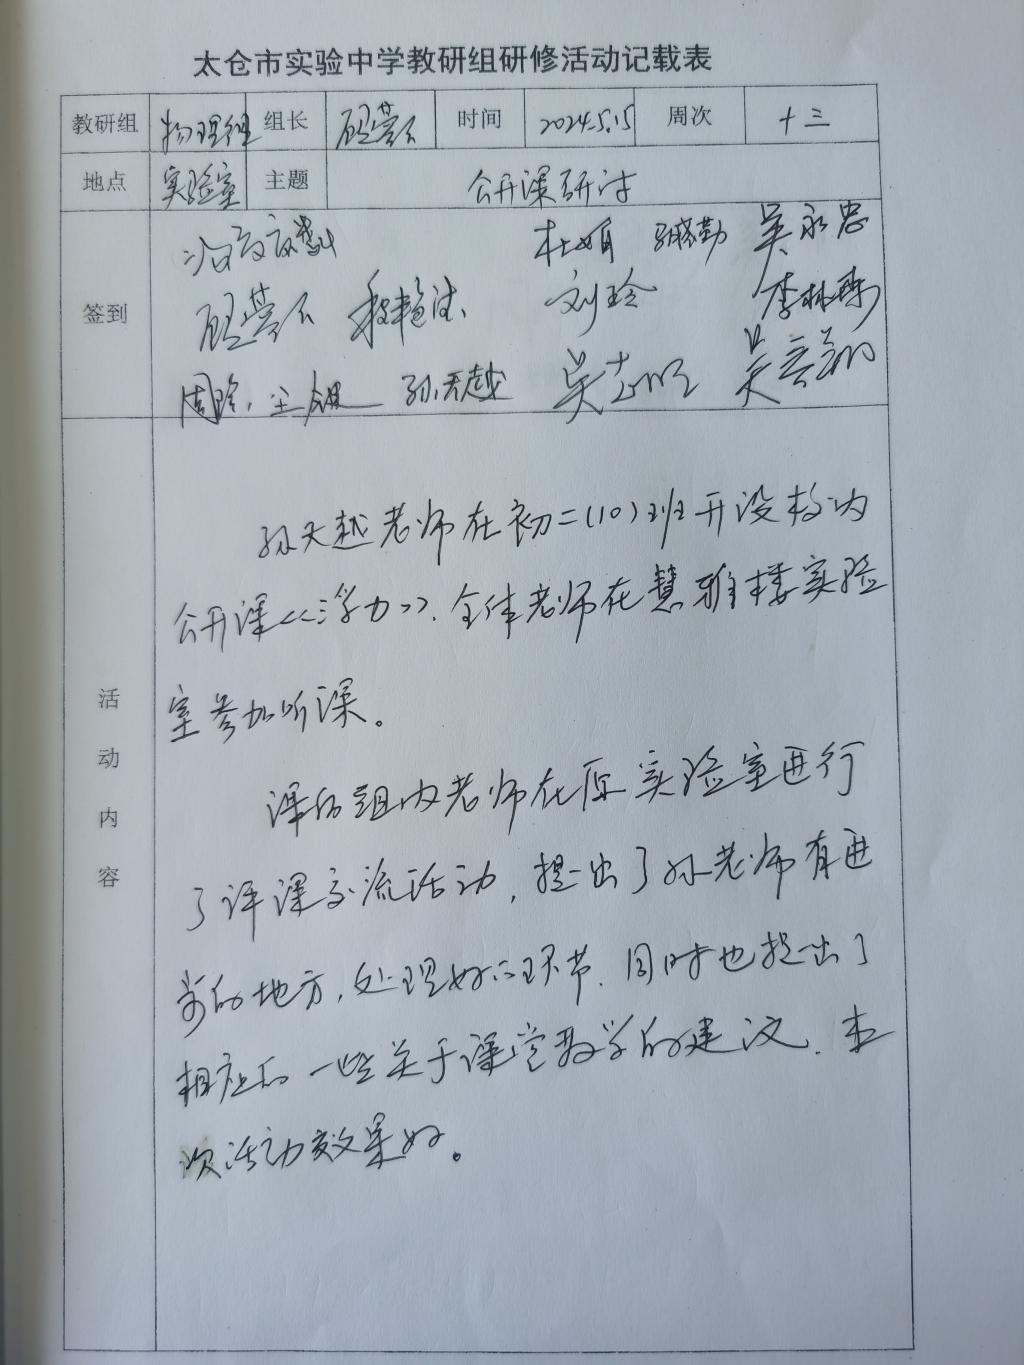 太仓市实验中学教研组研修活动记载表
教研组 物理组 组长 时间 2024.5.15 周次 十三
地点 实验室 主题 公开课研讨
签到
杜娟 吴永忠
刘玲
周玲 孙天越 吴志明
活动内容
孙天越老师在初二(10)班开设校内
公开课<<浮力>>.全体老师在慧雅楼实验
室参加听课。
课后组内老师在原实验室进行
了评课交流活动,提出了孙老师有进
步的地方,处理好的环节.同时也提出了
相应的一些关于课堂教学的建议.本
次活动效果好。